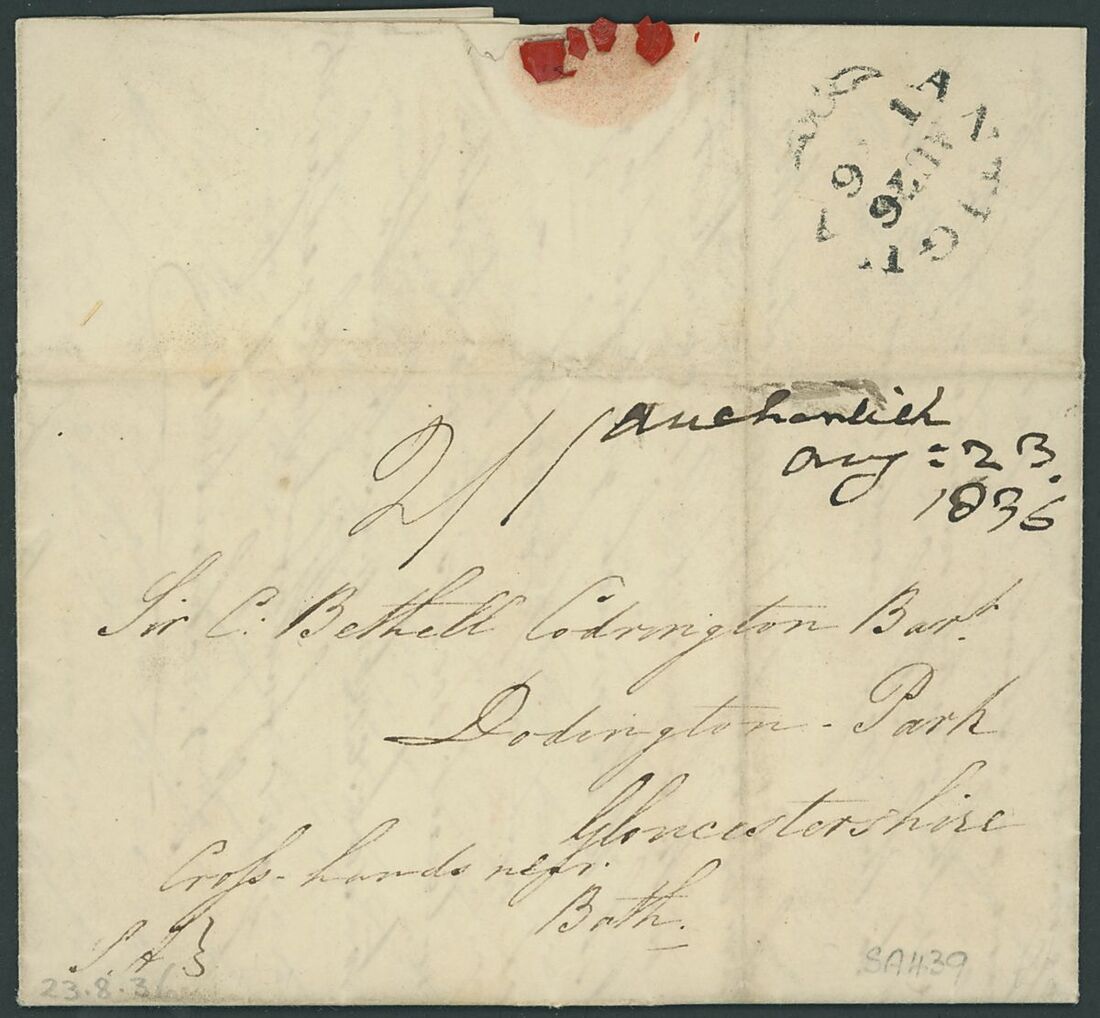 ANTIGUA
2/1
Auchenleck
Aug: 23.
1836
Sir C. Bethell Codrington Bart
Dodington Park
Gloucestershire
Cross-hands near
Bath.
23.8.36
SA439